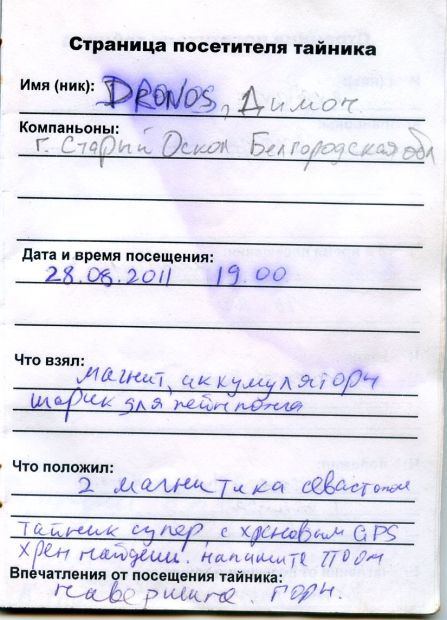 Страница посетителя тайника
Имя (ник): DRONOS, Димон.
Компаньоны:
г. Старый Оскол Белгородская обл
Дата и время посещения:
28.08.2011 19.00
Что взял:
магнит, аккумуляторы
шарик для пейнтбола
Что положил:
2 магнитика севастополь
Тайник супер, с хреновым GPS
хрен найдеш. напишите
Впечатления от посещения тайника:
на вершине. горы.